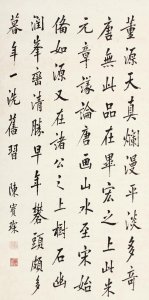 董源天真爛漫平淡多奇
唐無此品在畢宏之上此朱
元章議論唐畫山水至宋始
備如源又在諸公之上樹石幽
潤峯巒清勝早年礬頭頗多
暮年一洗舊習 陳寶琛